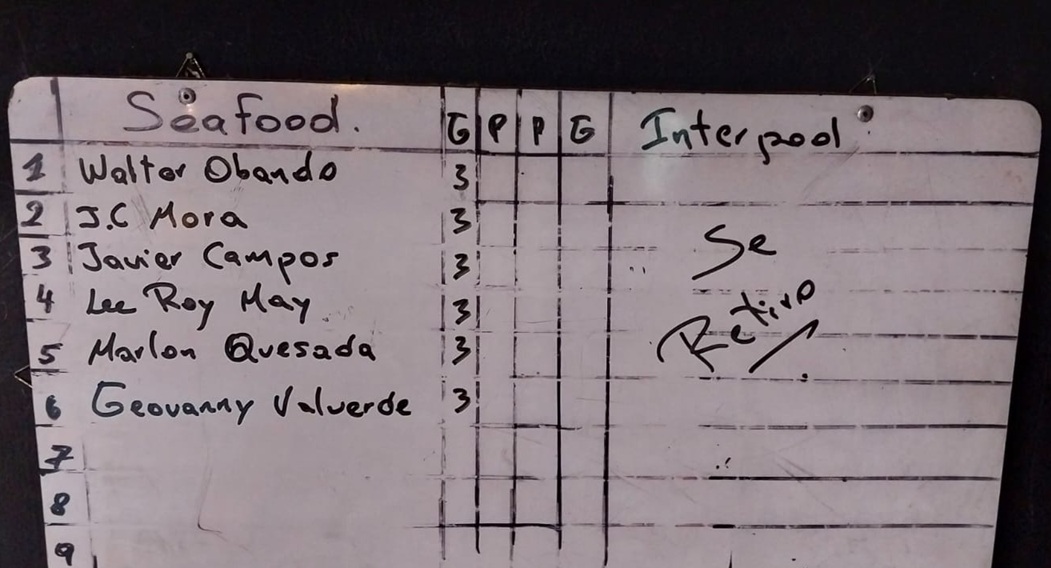 Seafood. G P P G Interpool
1 Walter Obando 3
2 J.C Mora 3
3 Javier Campos 3
4 Lee Roy May 3
5 Marlon Quesada 3
6 Geovanny Valverde 3
7
8
9
Se
Retiro